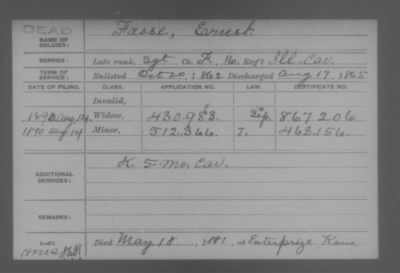 DEAD
NAME OF SOLDIER: Fasse, Ernest
SERVICE: Late rank, Sgt Co. F, 16 Reg't Ill. Cav.
TERM OF SERVICE: Enlisted Oct 20, 1862 Discharged Aug 19, 1865
DATE OF FILING. CLASS. APPLICATION NO. LAW. CERTIFICATE NO.
Invalid,
1890 Aug 14 Widow, 430.983. 867206
1890 Aug 14 Minor, 512.366. J. 463.156.
ADDITIONAL SERVICES: K 5 Mo. Cav.
REMARKS:
Died May 18, 1881, at Enterprize Kans.